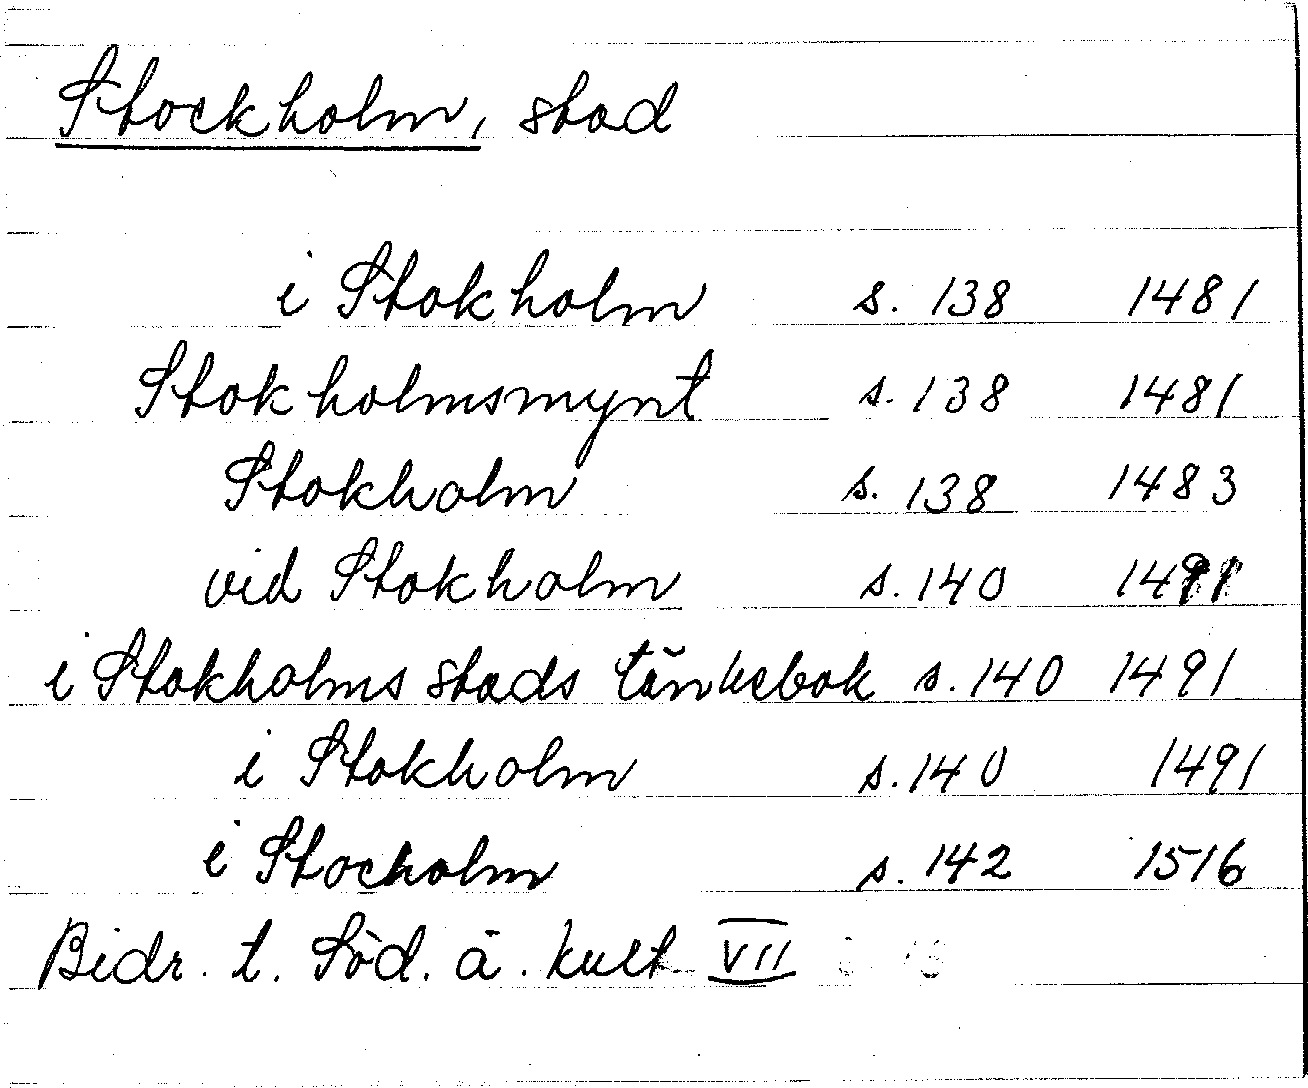 Stockholm, stad
i Stokholm s. 138 1481
Stokholmsmynt s. 138 1481
Stokholm s. 138 1483
vid Stokholm s. 140 1491
i Stokholms stads tänkebok s. 140 1491
i Stokholm s. 140 1491
i Stocholm s. 142 1516
Bidr. t. Söd. ä. kult VII